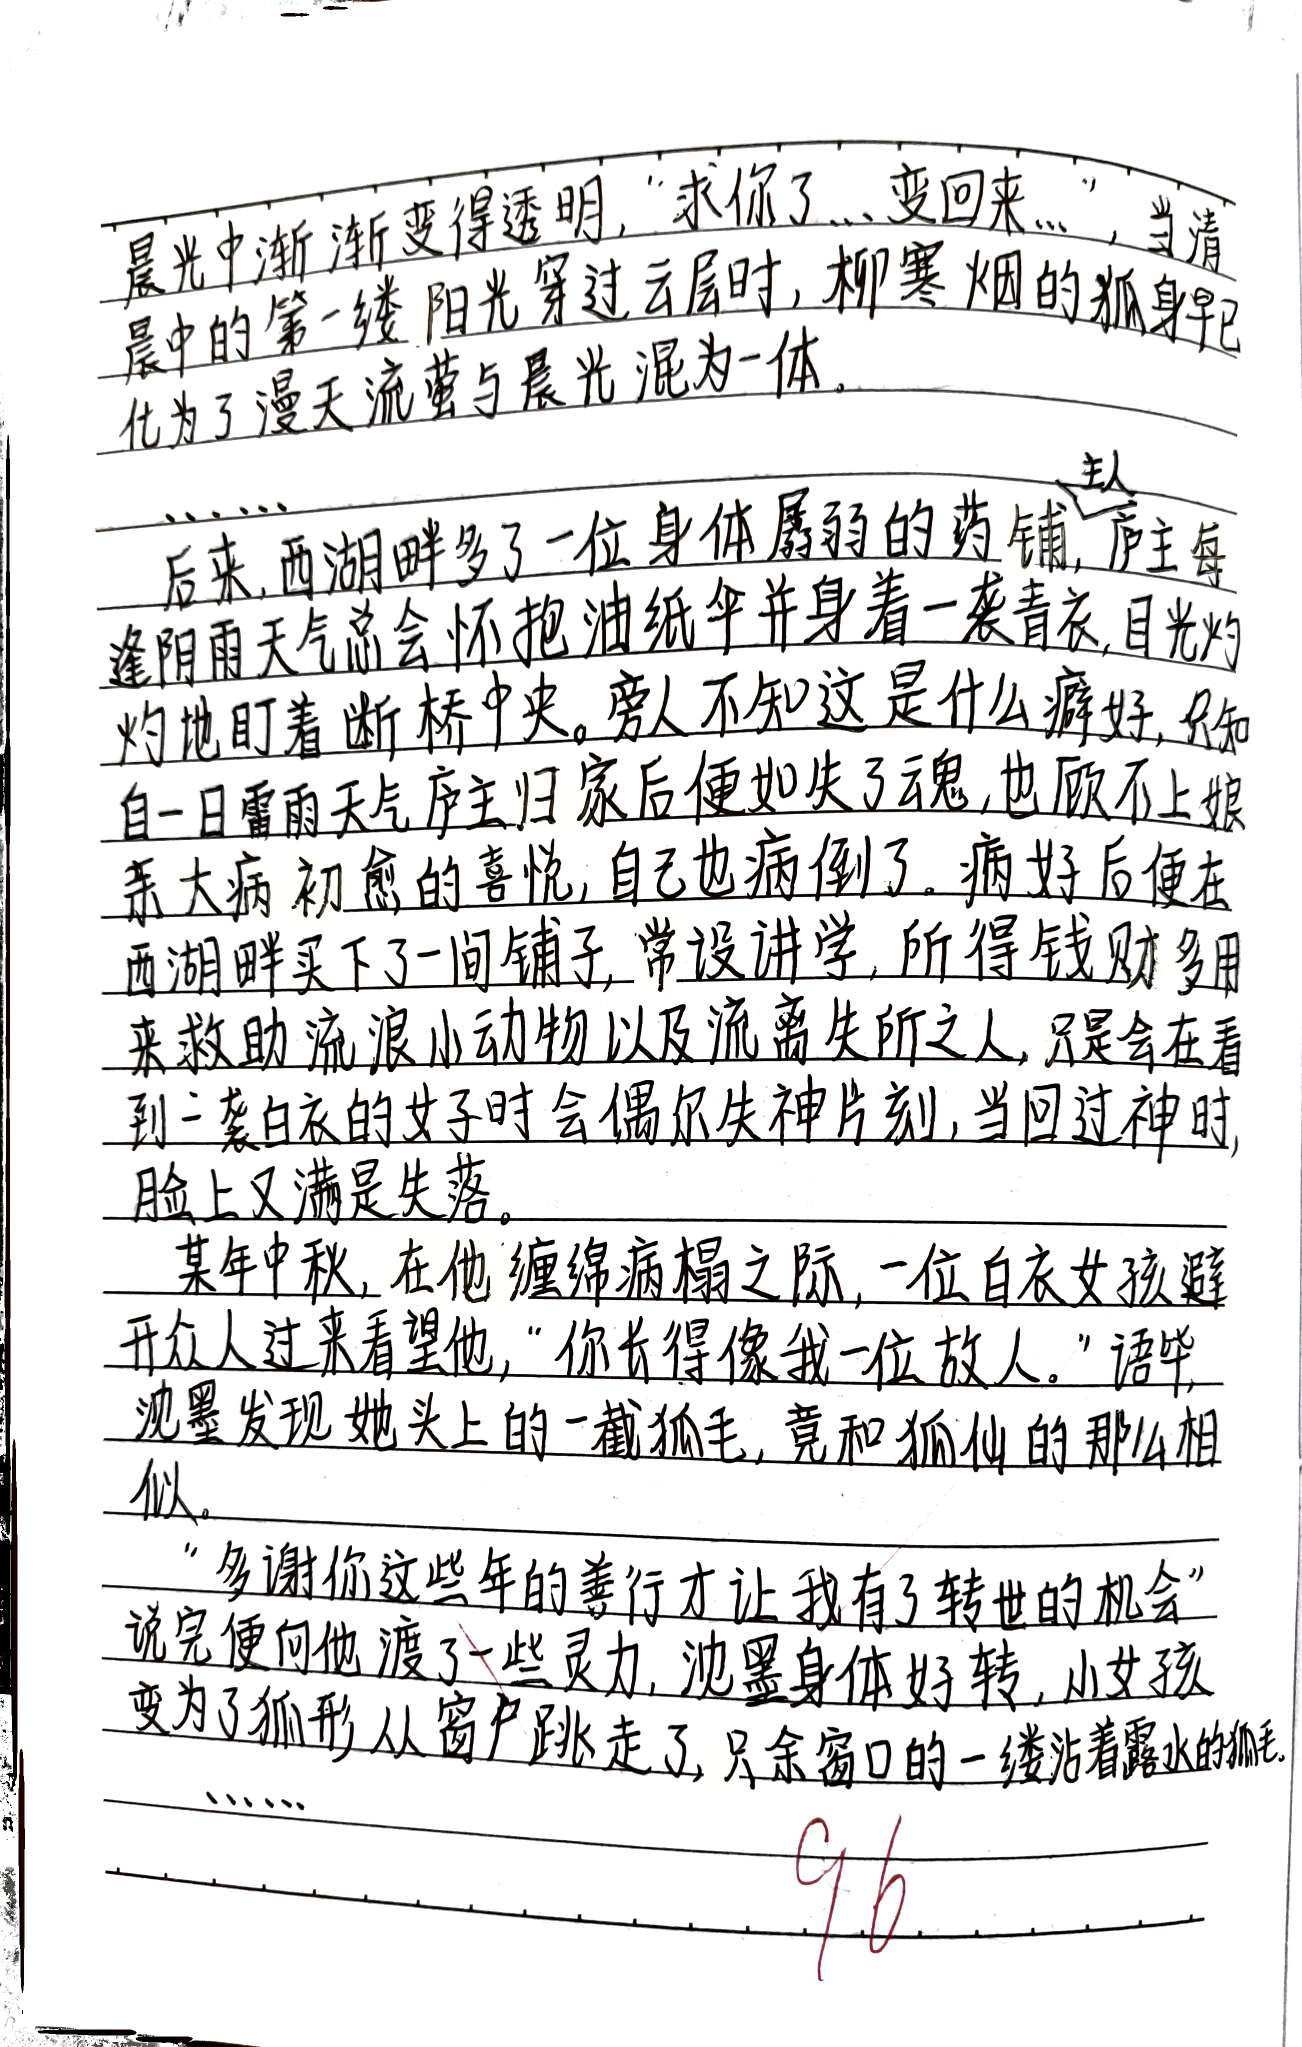 晨光中渐渐变得透明，“求你了...变回来...”，当清
晨中的第一缕阳光穿过云层时，柳寒烟的狐身早已
化为了漫天流萤与晨光混为一体。
……
主人
后来，西湖畔多了一位身体孱弱的药铺，庐主每
逢阴雨天气总会怀抱油纸伞并身着一袭青衣，目光灼
灼地盯着断桥中央。旁人不知这是什么癖好，只知
自一日雷雨天气庐主归家后便如失了魂，也顾不上娘
亲大病初愈的喜悦，自己也病倒了。病好后便在
西湖畔买下了一间铺子，常设讲学，所得钱财多用
来救助流浪小动物以及流离失所之人，只是会在看
到一袭白衣的女子时会偶尔失神片刻，当回过神时，
脸上又满是失落。
某年中秋，在他缠绵病榻之际，一位白衣女孩避
开众人过来看望他，“你长得像我一位故人。”语毕，
沈墨发现她头上的一截狐毛，竟和狐仙的那么相
似。
“多谢你这些年的善行才让我有了转世的机会”
说完便向他渡了一些灵力，沈墨身体好转，小女孩
变为了狐形从窗户跳走了，只余窗口的一缕沾着露水的狐毛。
……
96